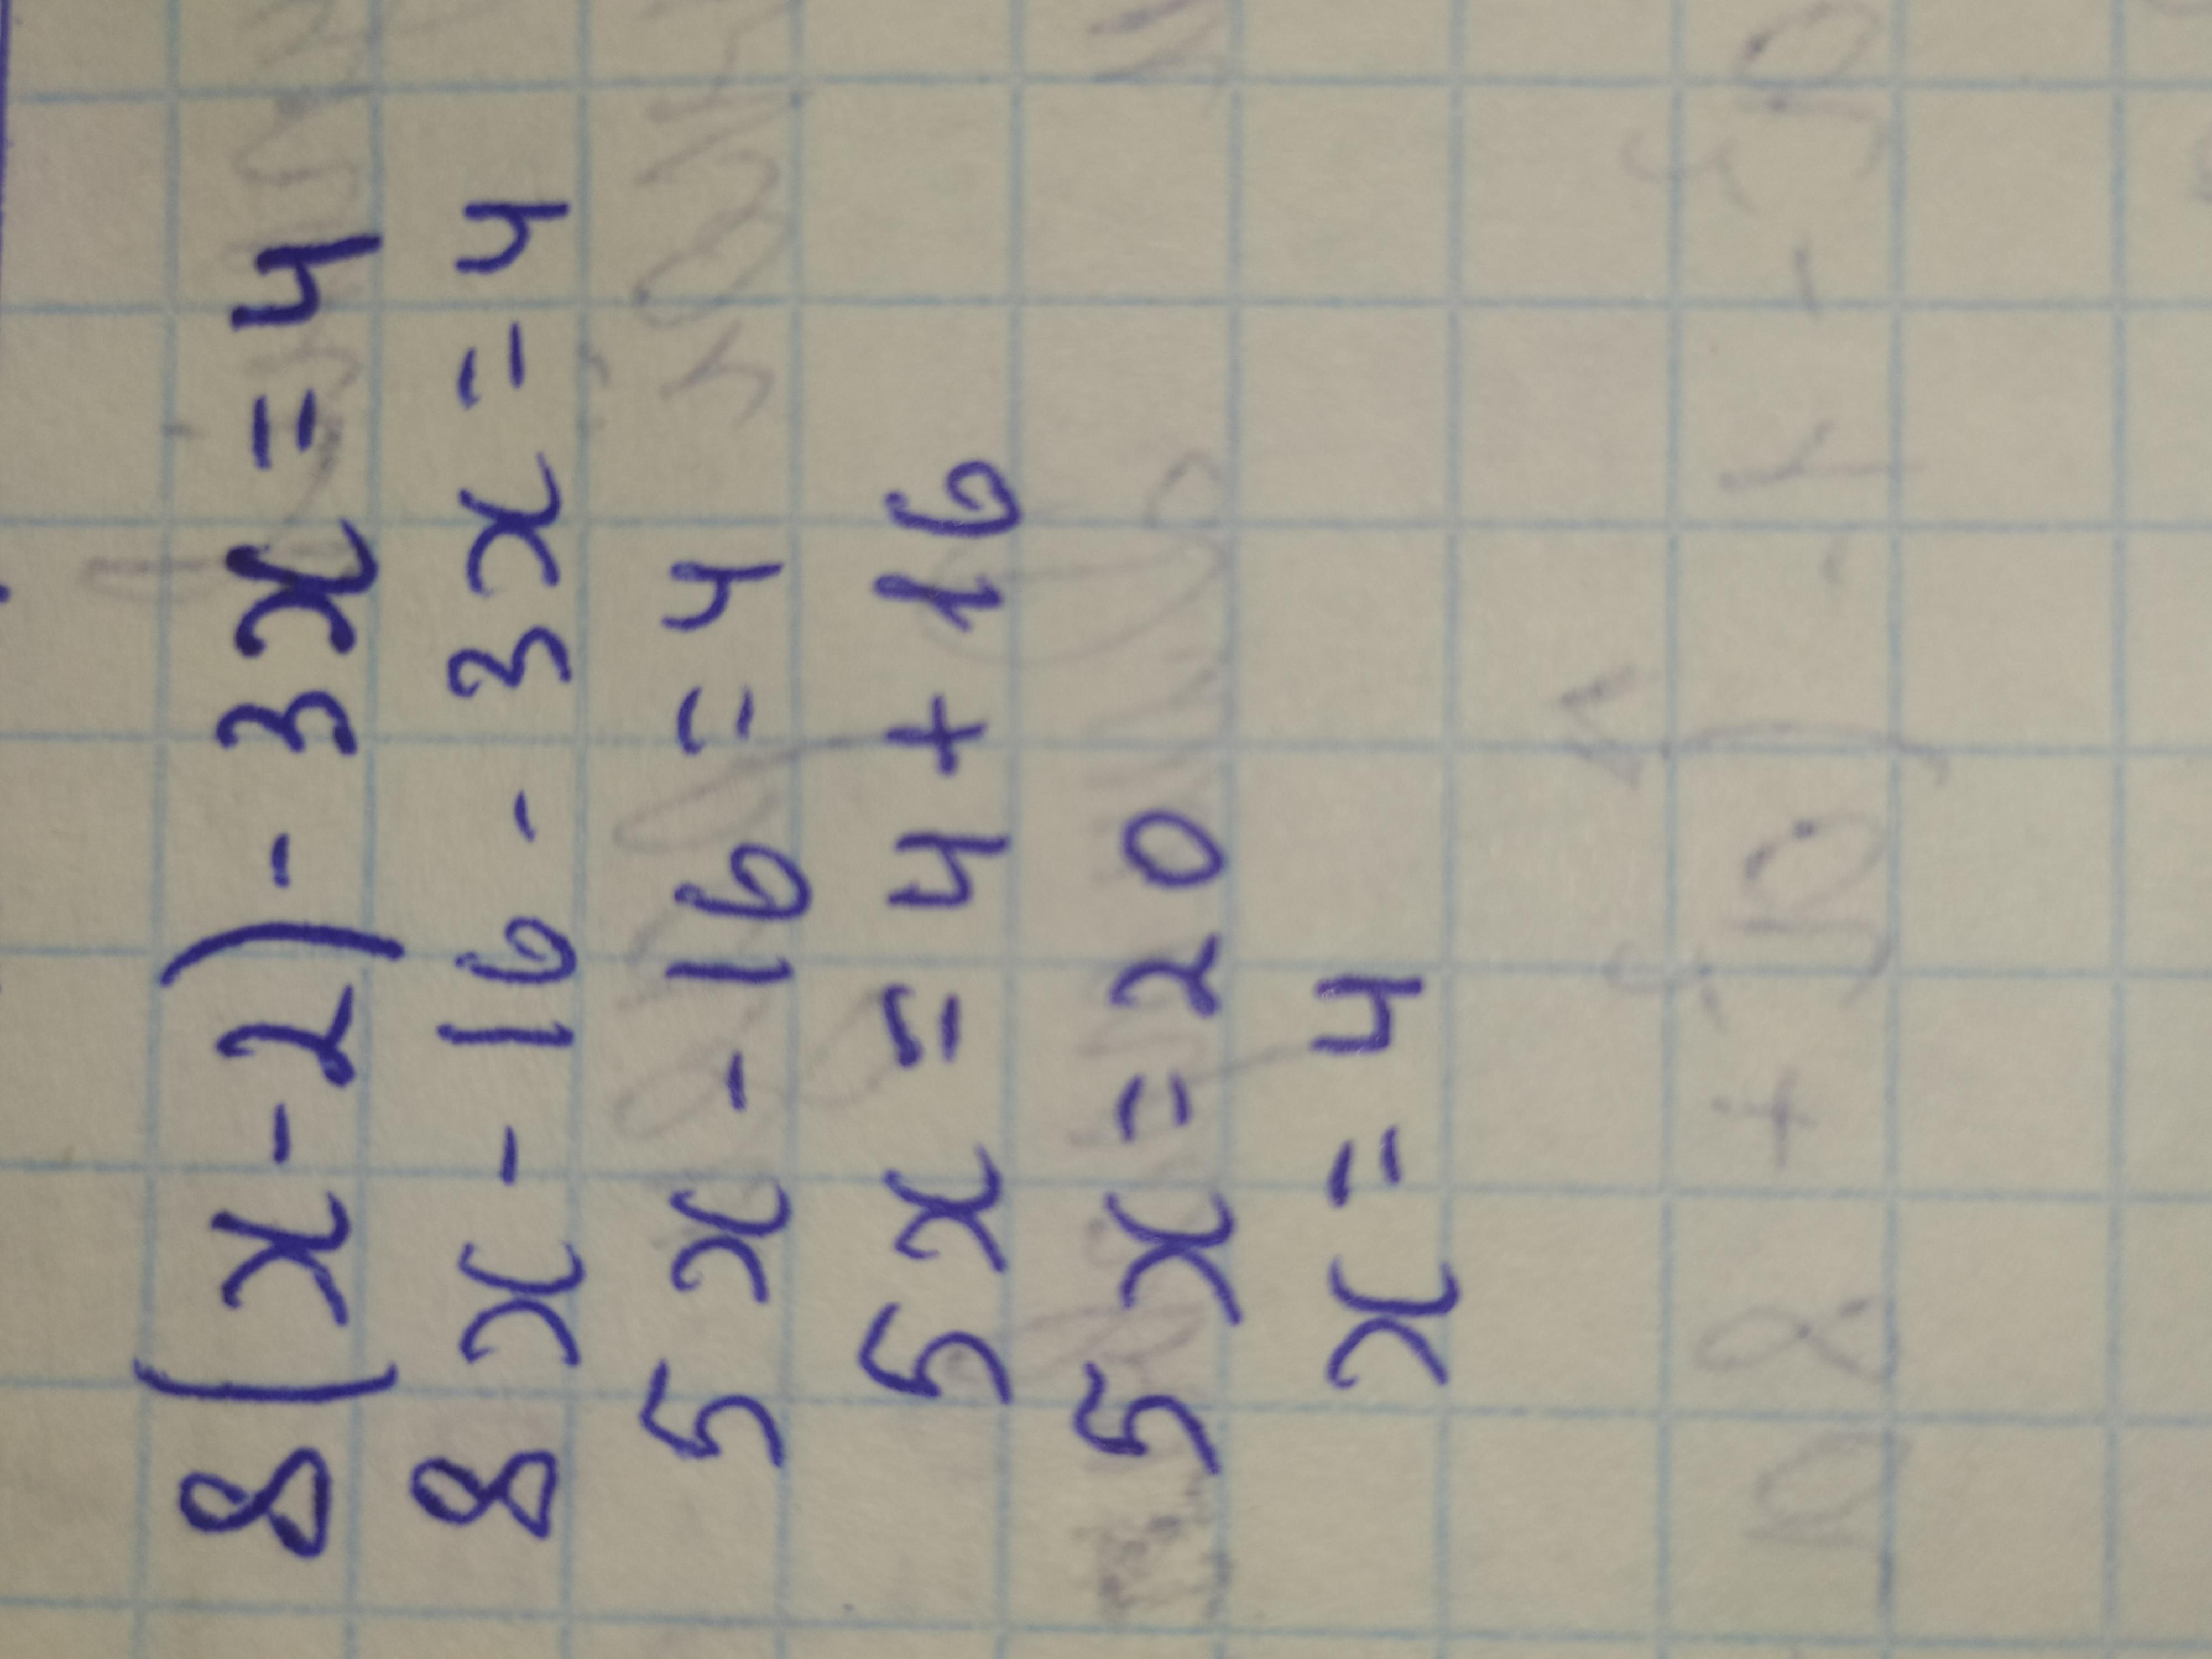 8(x-2)-3x=4
8x-16-3x=4
5x-16=4
5x=4+16
5x=20
x=4